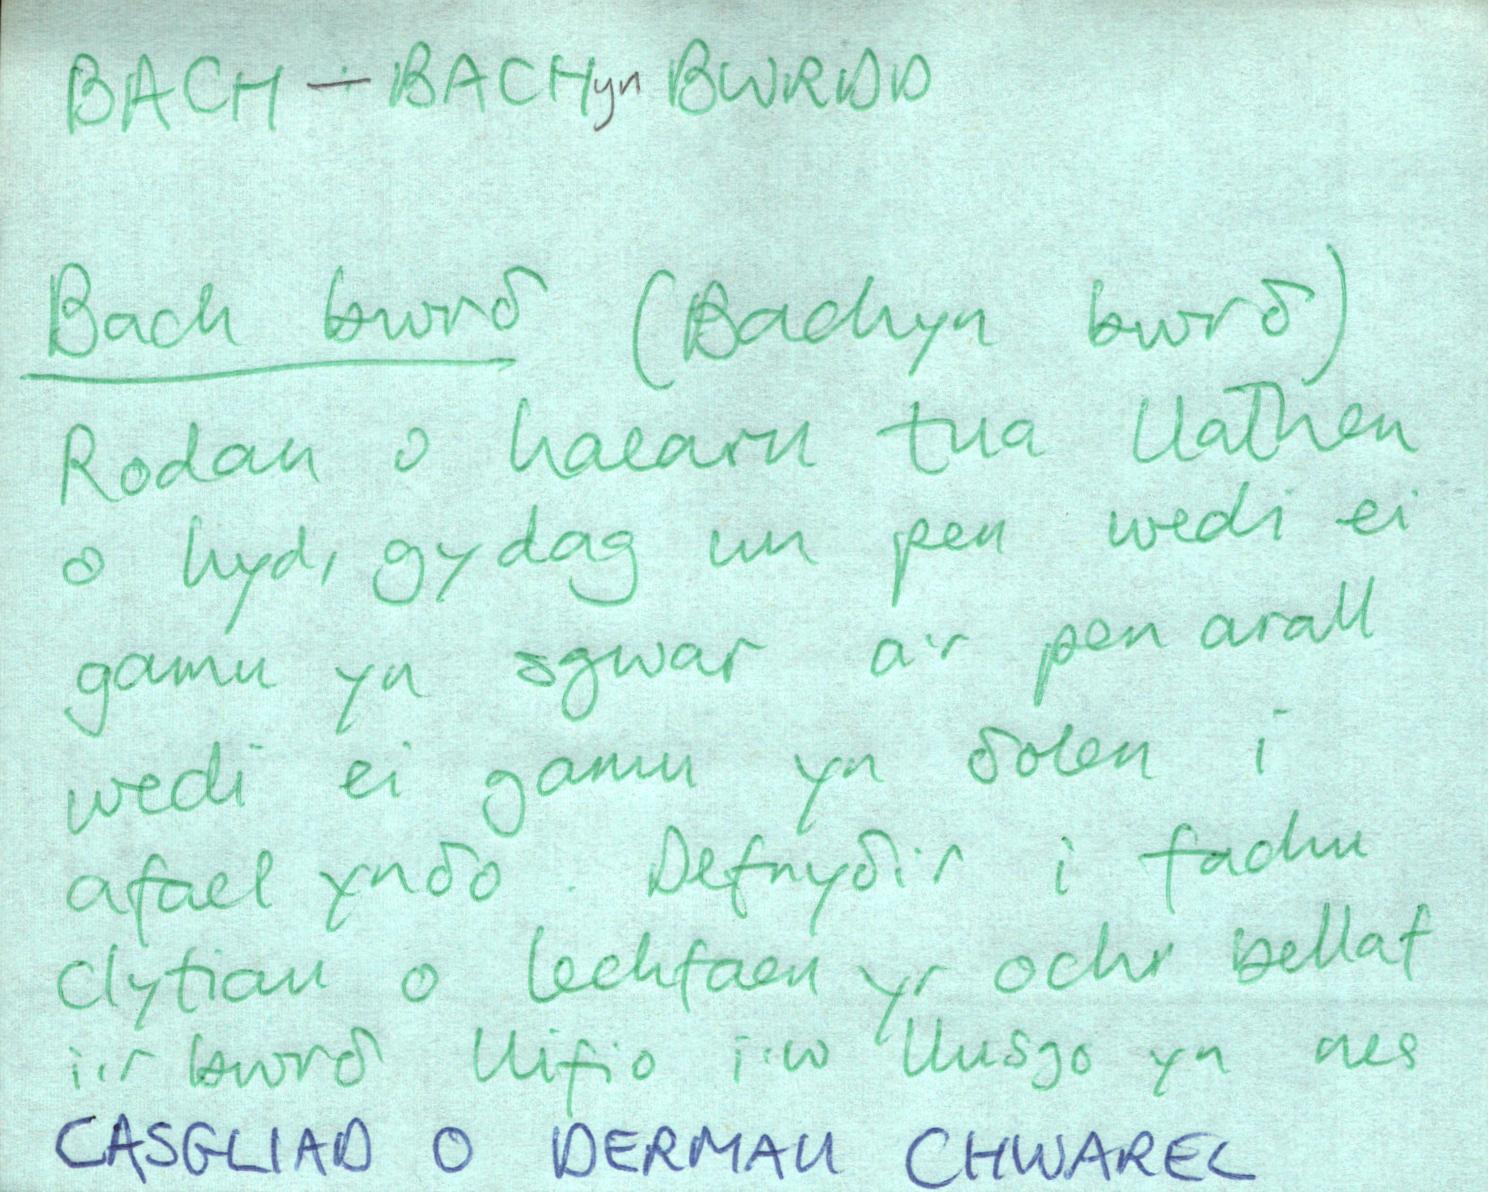 BACH – BACHyn BWRDD
Bach bwrδ (Bachyn bwrδ)
Rodan o haearn tua llathen
o hyd, gydag un pen wedi ei
gamu yn sgwar a'r pen arall
wedi ei gamu yn δolen i
afael ynδo. Defnyδir i fachu
clytiau o lechfaen yr ochr bellaf
i'r bwrδ llifio i'w llusgo yn nes
CASGLIAD O DERMAU CHWAREL